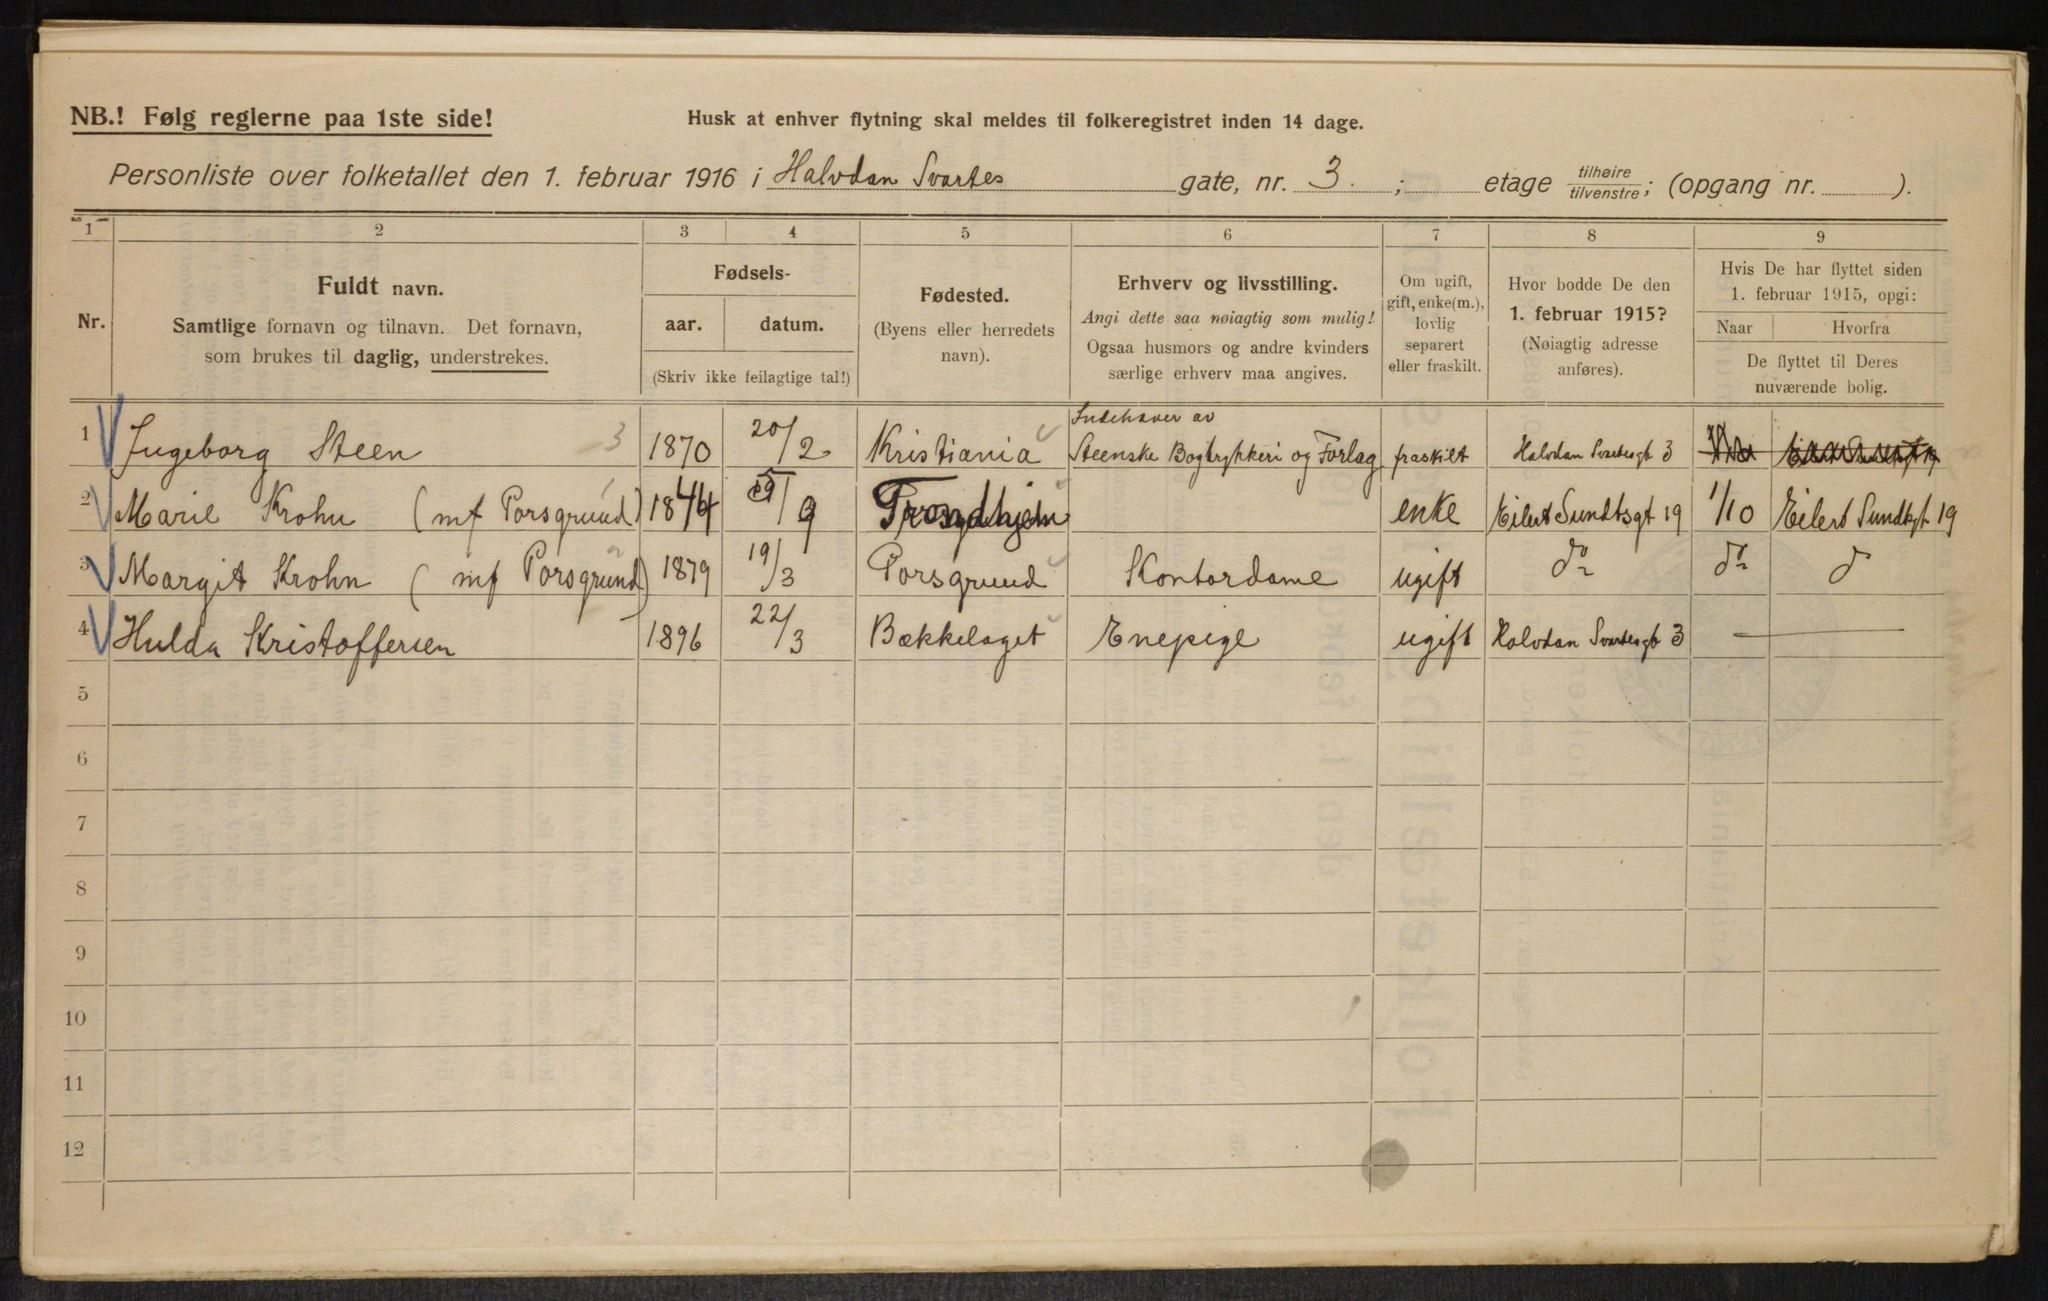 NB.! Følg reglerne paa 1ste side!
Husk at enhver flytning skal meldes til folkeregistret inden 14 dage.
Personliste over folketallet den 1. februar 1916 i Halvdan Svartes gate, nr. 3. ; etage tilhøire/tilvenstre; (opgang nr. ).
1 2 3 4 5 6 7 8 9
Nr.
Fuldt navn.
Samtlige fornavn og tilnavn. Det fornavn,
som brukes til daglig, understrekes.
Fødsels-
aar. datum.
(Skriv ikke feilagtige tal!)
Fødested.
(Byens eller herredets
navn).
Erhverv og livsstilling.
Angi dette saa nøiagtig som mulig!
Ogsaa husmors og andre kvinders
særlige erhverv maa angives.
Om ugift,
gift, enke(m.),
lovlig
separert
eller fraskilt.
Hvor bodde De den
1. februar 1915?
(Nøiagtig adresse
anføres).
Hvis De har flyttet siden
1. februar 1915, opgi:
Naar Hvorfra
De flyttet til Deres
nuværende bolig.
1 Ingeborg Steen 3 1870 20/2 Kristiania Indehaver av Steenske Bogtrykkeri og Forlag fraskilt Halvdan Svartesgt 3
2 Marie Krohn (mf Porsgrund) 1844 /9 Trondhjem enke Eilert Sundtsgt 19 1/10 Eilert Sundtsgt 19
3 Margit Krohn (mf Porsgrund) 1879 19/3 Porsgrund Kontordame ugift do do do
4 Hulda Kristoffersen 1896 22/3 Bækkelaget Enepige ugift Halvdan Svartesgt 3 —
5
6
7
8
9
10
11
12